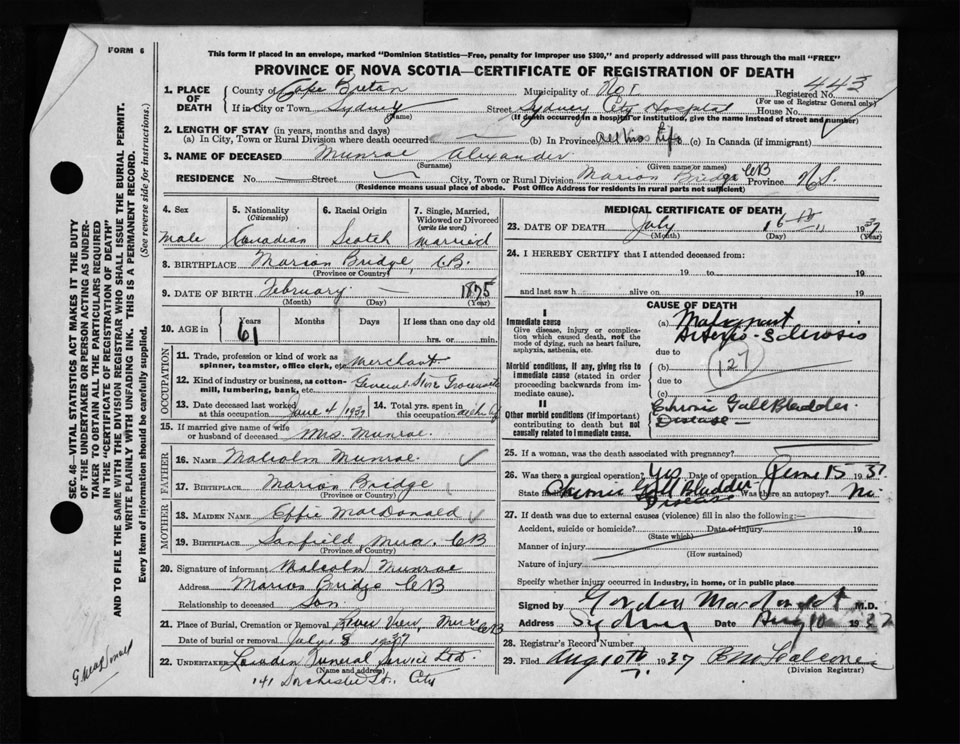 FORM 6
This form if placed in an envelope, marked "Dominion Statistics—Free, penalty for improper use $300," and properly addressed will pass through the mail "FREE"
PROVINCE OF NOVA SCOTIA—CERTIFICATE OF REGISTRATION OF DEATH
SEC. 46—VITAL STATISTICS ACT MAKES IT THE DUTY
OF THE UNDERTAKER OR PERSON ACTING AS UNDER-
TAKER TO OBTAIN ALL THE PARTICULARS REQUIRED
IN THE "CERTIFICATE OF REGISTRATION OF DEATH"
AND TO FILE THE SAME WITH THE DIVISION REGISTRAR WHO SHALL ISSUE THE BURIAL PERMIT.
WRITE PLAINLY WITH UNFADING INK. THIS IS A PERMANENT RECORD.
Every item of information should be carefully supplied. (See reverse side for instructions.)
1. PLACE OF DEATH
County of Cape Breton Municipality of Registered No. 443
(For use of Registrar General only)
If in City or Town Sydney (Name) Street Sydney City Hospital House No.
(If death occurred in a hospital or institution, give the name instead of street and number)
2. LENGTH OF STAY (in years, months and days)
(a) In City, Town or Rural Division where death occurred (b) In Province All his Life (c) In Canada (if immigrant)
3. NAME OF DECEASED Munroe Alexander
(Surname) (Given name or names)
RESIDENCE No. Street City, Town or Rural Division Marion Bridge CB Province N.S.
(Residence means usual place of abode. Post Office Address for residents in rural parts not sufficient)
4. Sex Male
5. Nationality (Citizenship) Canadian
6. Racial Origin Scotch
7. Single, Married, Widowed or Divorced (write the word) Married
8. BIRTHPLACE Marion Bridge, CB.
(Province or Country)
9. DATE OF BIRTH February — 1875
(Month) (Day) (Year)
10. AGE in Years 61 Months Days If less than one day old
hrs. or min.
OCCUPATION
11. Trade, profession or kind of work as spinner, teamster, office clerk, etc. Merchant
12. Kind of industry or business, as cotton-mill, lumbering, bank, etc. General Store
13. Date deceased last worked at this occupation June 4/1937
14. Total yrs. spent in this occupation
15. If married give name of wife or husband of deceased Mrs. Munroe.
FATHER
16. NAME Malcolm Munroe.
17. BIRTHPLACE Marion Bridge
(Province or Country)
MOTHER
18. MAIDEN NAME Effie MacDonald
19. BIRTHPLACE Sanfield Mira. CB
(Province or Country)
20. Signature of informant Malcolm Munroe
Address Marion Bridge CB
Relationship to deceased Son
21. Place of Burial, Cremation or Removal River View Mira CB
Date of burial or removal July 18 1937
22. UNDERTAKER Funeral Service Ltd.
(Name and address)
141 Dorchester St. City
MEDICAL CERTIFICATE OF DEATH
23. DATE OF DEATH July 16th 1937
(Month) (Day) (Year)
24. I HEREBY CERTIFY that I attended deceased from:
19 to 19
and last saw h alive on 19
CAUSE OF DEATH
I
Immediate cause
Give disease, injury or complication which caused death, not the mode of dying, such as heart failure, asphyxia, asthenia, etc.
(a) Malignant
Arterio-Sclerosis
due to
Morbid conditions, if any, giving rise to immediate cause (stated in order proceeding backwards from immediate cause).
(b) 127
due to
(c)
II
Other morbid conditions (if important) contributing to death but not causally related to immediate cause.
Chronic Gall Bladder
Disease—
25. If a woman, was the death associated with pregnancy?
26. Was there a surgical operation? Yes Date of operation June 15 1937
State findings Chronic Gall Bladder Disease Was there an autopsy? No
27. If death was due to external causes (violence) fill in also the following:—
Accident, suicide or homicide? Date of injury 19
(State which)
Manner of injury
(How sustained)
Nature of injury
Specify whether injury occurred in industry, in home, or in public place
Signed by Gordon M.D.
Address Sydney Date Aug 10 1937
28. Registrar's Record Number
29. Filed Aug 10th 1937
(Division Registrar)